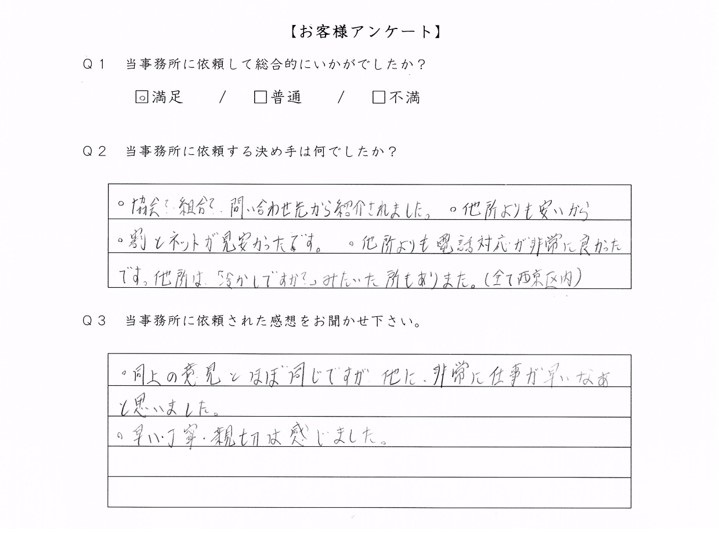 【お客様アンケート】
Q1 当事務所に依頼して総合的にいかがでしたか?
☐満足 / ☐普通 / ☐不満
Q2 当事務所に依頼する決め手は何でしたか?
。協会で 組合で、問い合わせ先から紹介されました。 。他所よりも安いから
。割とネットが見安かったです。 。他所よりも電話対応が非常に良かった
です。他所は、「冷かしですか?」みたいた所もありまた。(全て西京区内)
Q3 当事務所に依頼された感想をお聞かせ下さい。
。同上の意見とほぼ同じですが 他に、非常に仕事が早いなぁ
と思いました。
。早い・丁寧・親切は感じました。